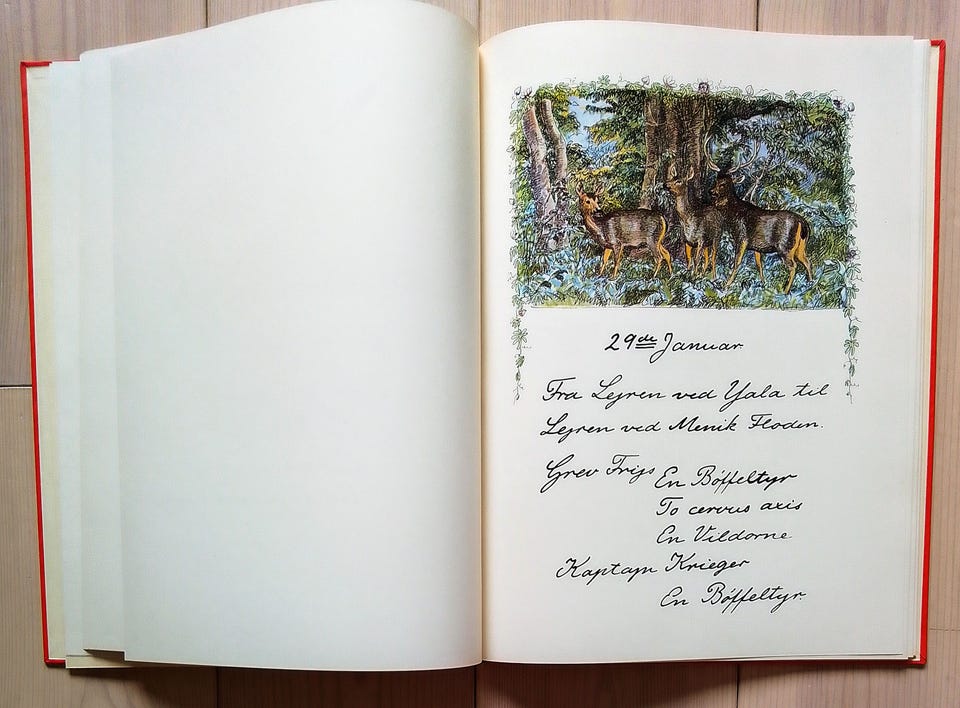 29de Januar
Fra Lejren ved Yala til
Lejren ved Menik Floden.
Grev Frijs En Bøffeltyr
To cervus axis
En Vildorne
Kaptajn Krieger
En Bøffeltyr.